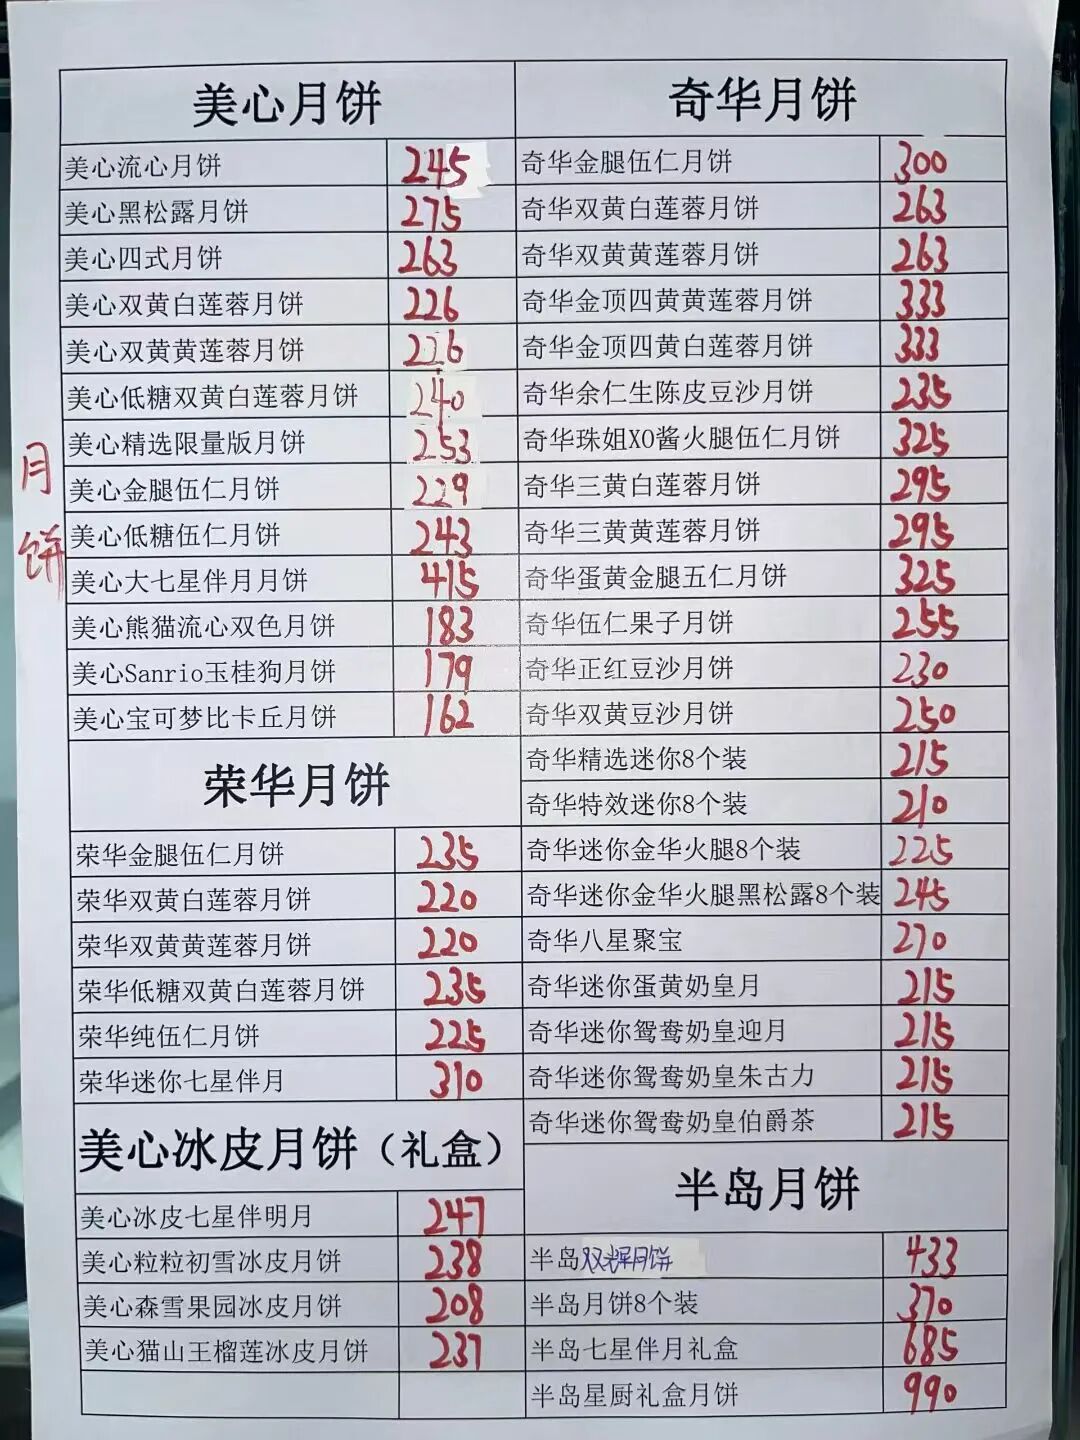 月饼
美心月饼
美心流心月饼 245
美心黑松露月饼 275
美心四式月饼 263
美心双黄白莲蓉月饼 226
美心双黄黄莲蓉月饼 226
美心低糖双黄白莲蓉月饼 240
美心精选限量版月饼 253
美心金腿伍仁月饼 229
美心低糖伍仁月饼 243
美心大七星伴月月饼 415
美心熊猫流心双色月饼 183
美心Sanrio玉桂狗月饼 179
美心宝可梦比卡丘月饼 162
荣华月饼
荣华金腿伍仁月饼 235
荣华双黄白莲蓉月饼 220
荣华双黄黄莲蓉月饼 220
荣华低糖双黄白莲蓉月饼 235
荣华纯伍仁月饼 225
荣华迷你七星伴月 310
美心冰皮月饼（礼盒）
美心冰皮七星伴明月 247
美心粒粒初雪冰皮月饼 238
美心森雪果园冰皮月饼 208
美心猫山王榴莲冰皮月饼 237
奇华月饼
奇华金腿伍仁月饼 300
奇华双黄白莲蓉月饼 263
奇华双黄黄莲蓉月饼 263
奇华金顶四黄黄莲蓉月饼 333
奇华金顶四黄白莲蓉月饼 333
奇华余仁生陈皮豆沙月饼 235
奇华珠姐XO酱火腿伍仁月饼 325
奇华三黄白莲蓉月饼 295
奇华三黄黄莲蓉月饼 295
奇华蛋黄金腿五仁月饼 325
奇华伍仁果子月饼 255
奇华正红豆沙月饼 230
奇华双黄豆沙月饼 250
奇华精选迷你8个装 215
奇华特效迷你8个装 210
奇华迷你金华火腿8个装 225
奇华迷你金华火腿黑松露8个装 245
奇华八星聚宝 270
奇华迷你蛋黄奶皇月 215
奇华迷你鸳鸯奶皇迎月 215
奇华迷你鸳鸯奶皇朱古力 215
奇华迷你鸳鸯奶皇伯爵茶 215
半岛月饼
半岛双辉月饼 433
半岛月饼8个装 370
半岛七星伴月礼盒 685
半岛星厨礼盒月饼 990